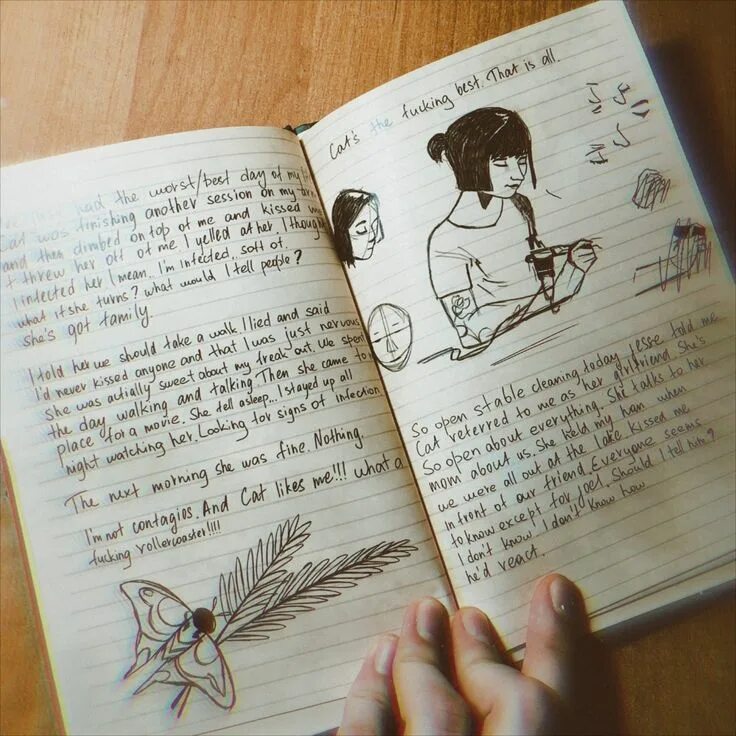 I've just had the worst/best day of my life
Cat was finishing another session on my arm
and then climbed on top of me and kissed me
I threw her off of me I yelled at her. I thought
I infected her I mean.. I'm infected.. sort of..
what if she turns? what would I tell people?
she's got family.
I told her we should take a walk. I lied and said
I'd never kissed anyone and that I was just nervous
She was actially sweet about my freak out. We spent
the day walking and talking. Then she came to my
place for a movie. She fell asleep... I stayed up all
night watching her. Looking for signs of infection
The next morning she was fine. Nothing.
I'm not contagios. And Cat likes me!!! what a
fucking rollercoaster!!!!
Cat's the fucking best. That is all.
So open stable cleaning today, Jesse told me
Cat referred to me as her girlfriend She's
So open about everything. She talks to her
mom about us. She held my han when
we were all out at the lake kissed me
in front of our friend Everyone seems
to know except for Joel. Should I tell him?
I don't know. I don't know how
he'd react.